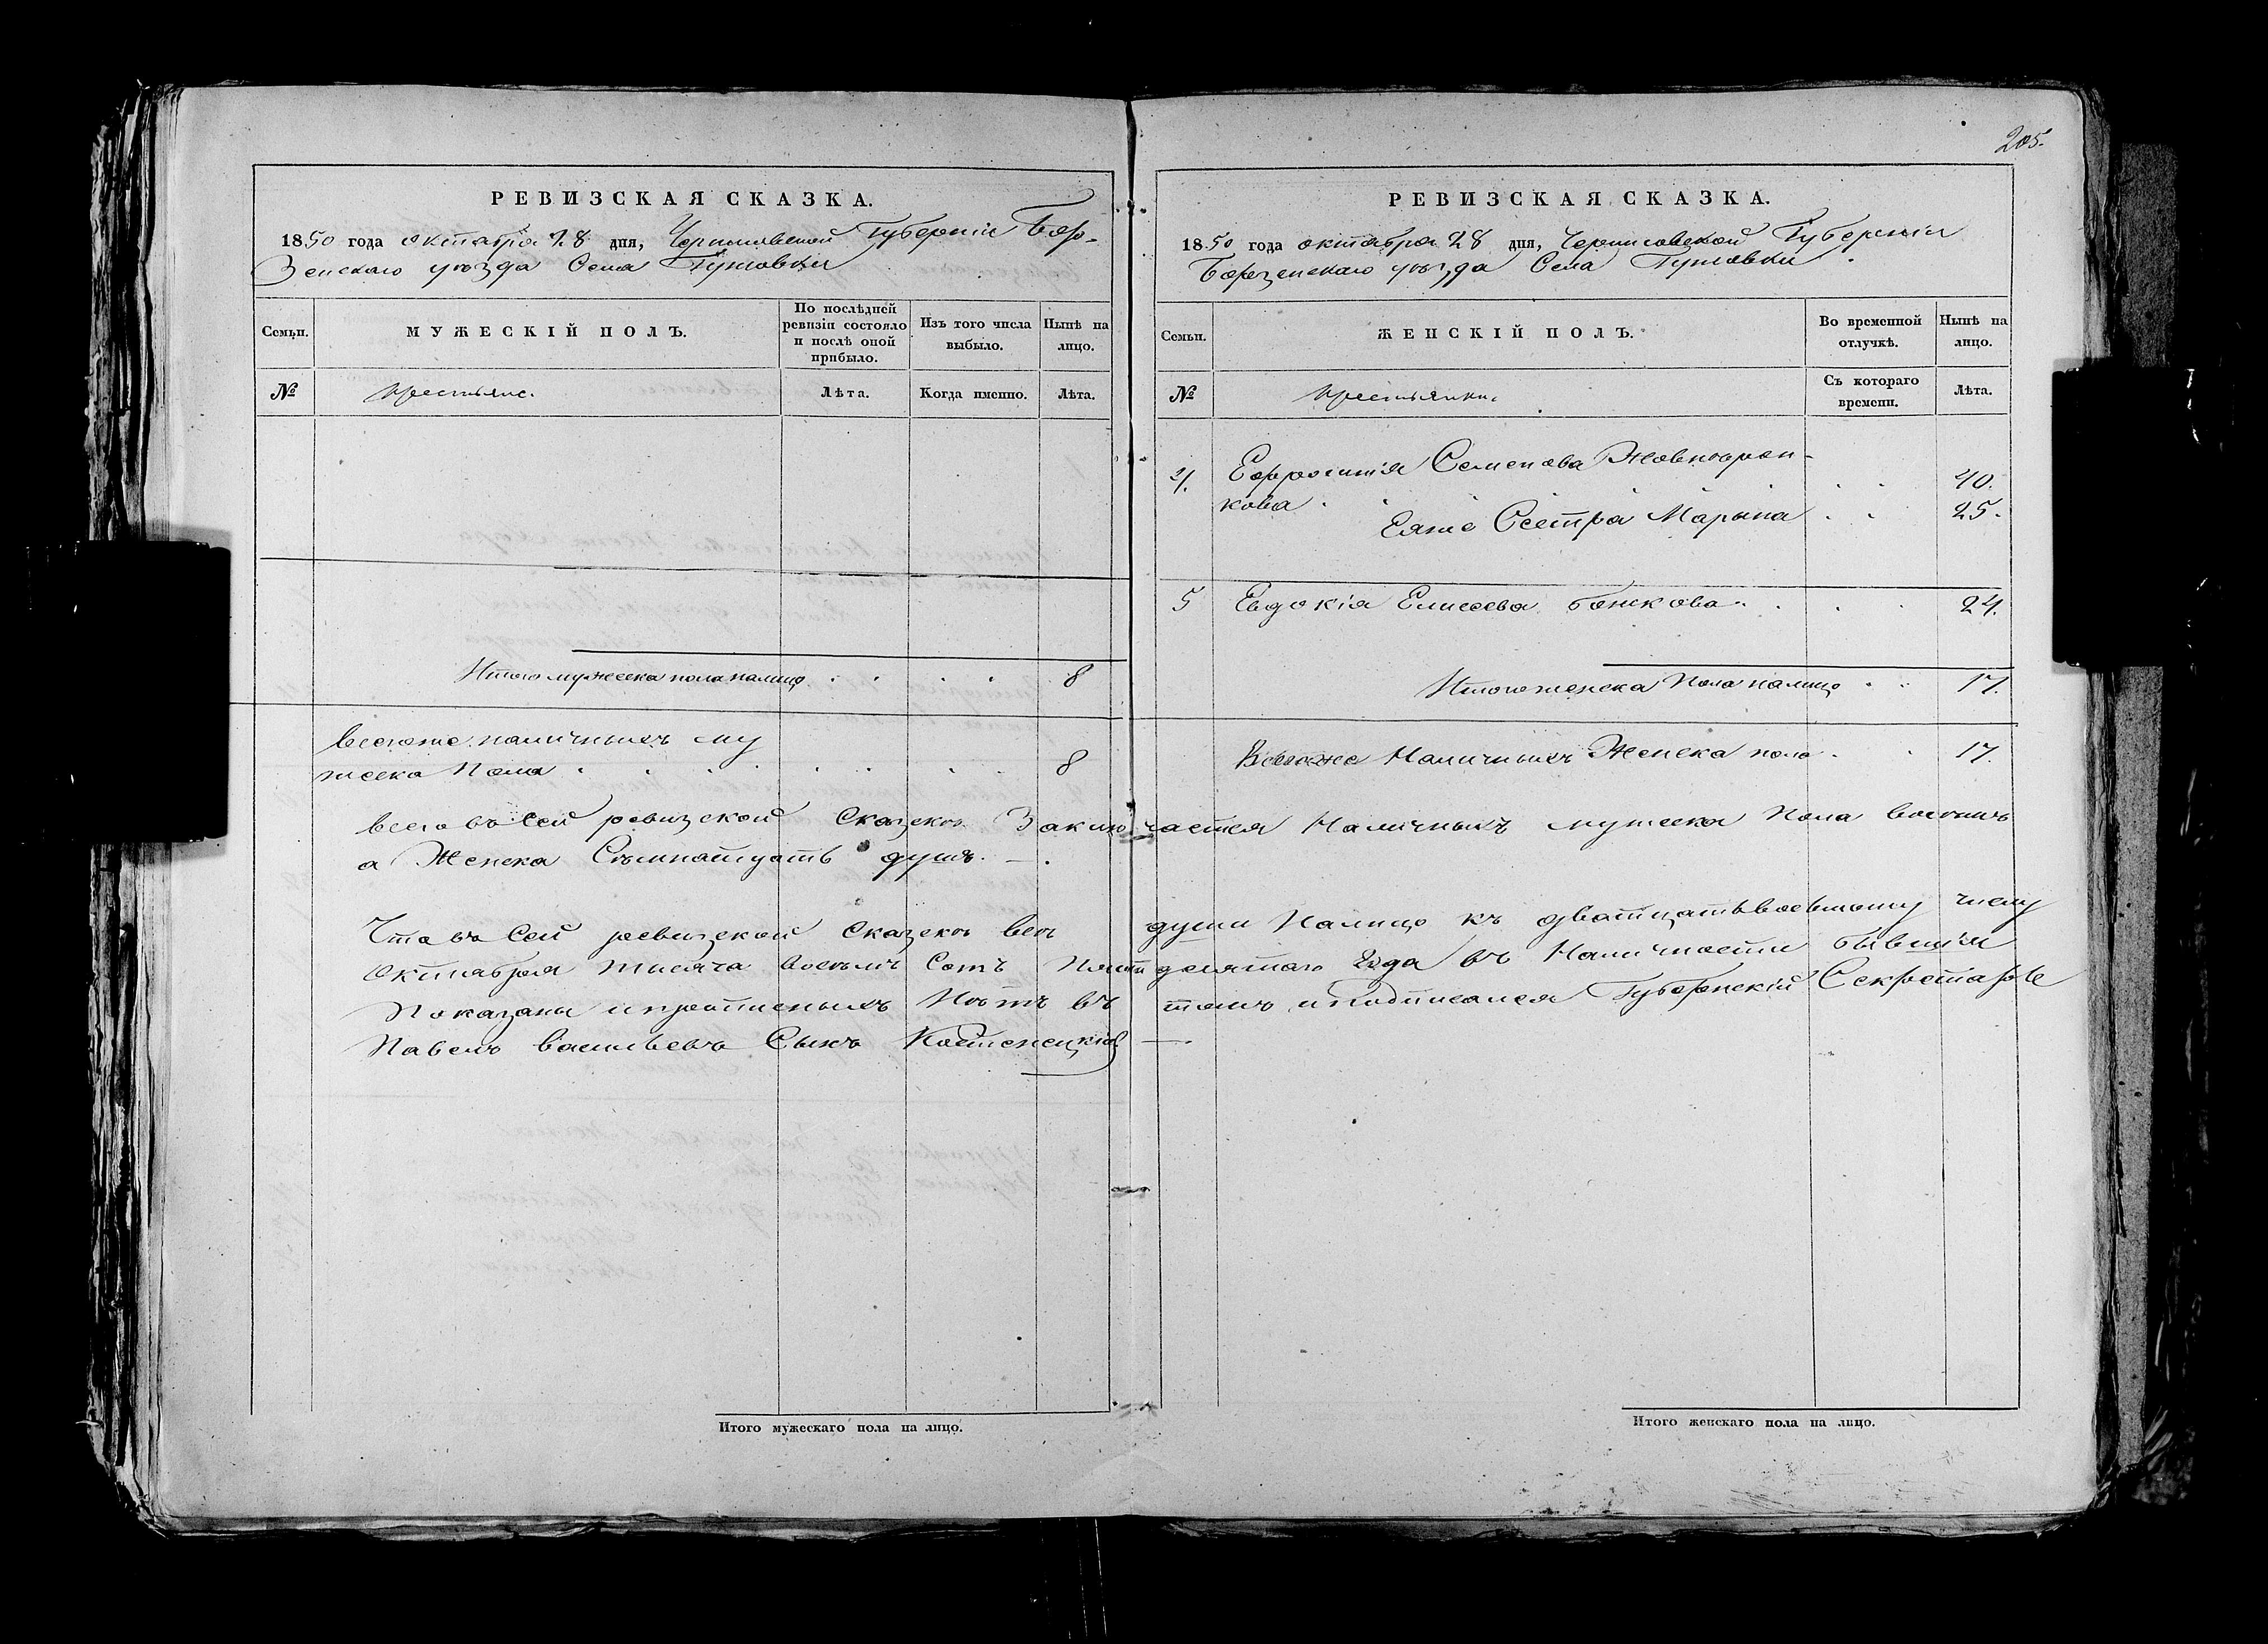 205.
РЕВИЗСКАЯ СКАЗКА.
1850 года октабра 28 дня, Черниговской Губерніи Бор-
зенскаго уѣзда Села
Семьи.
МУЖЕСКІЙ ПОЛЪ.
По послѣдней ревизіи состояло и послѣ оной прибыло.
Изъ того числа выбыло.
Нынѣ на лицо.
№
крестьяне.
Лѣта.
Когда именно.
Лѣта.
Итого мужеска пола налицо 8
всегоже наличныхъ му
жеска Пола 8
РЕВИЗСКАЯ СКАЗКА.
1850 года октабра 28 дня, Черниговской Губерніи
Борзенскаго уѣзда Села
Семьи.
ЖЕНСКІЙ ПОЛЪ.
Во временной отлучкѣ.
Нынѣ на лицо.
№
крестьянки.
Съ котораго времени.
Лѣта.
4. Ефросинія Семенова
кова 40.
Еяже Сестра Марьина 25.
5 Евдокія Елисеева 24.
Итого женска Пола налицо 17.
Всегоже Наличныхъ Женска пола 17.
всего въ сей ревизской Сказкѣ Заключается Наличныхъ мужеска Пола восемъ
а Женска Съмнатцать душъ.
Что въ Сей ревизской Сказкѣ всѣ души Налицо къ дватцатьвосьмому числу
Октнабря тысяча восемъ Сотъ Пятидесятаго Года въ Наличности бывшія
Показаны ипропиеныхъ Нѣтъ въ томъ иподписался Губернскій Секретарь
Павелъ васильевъ Сынъ Костенецкій
Итого мужескаго пола на лицо.
Итого женскаго пола на лицо.